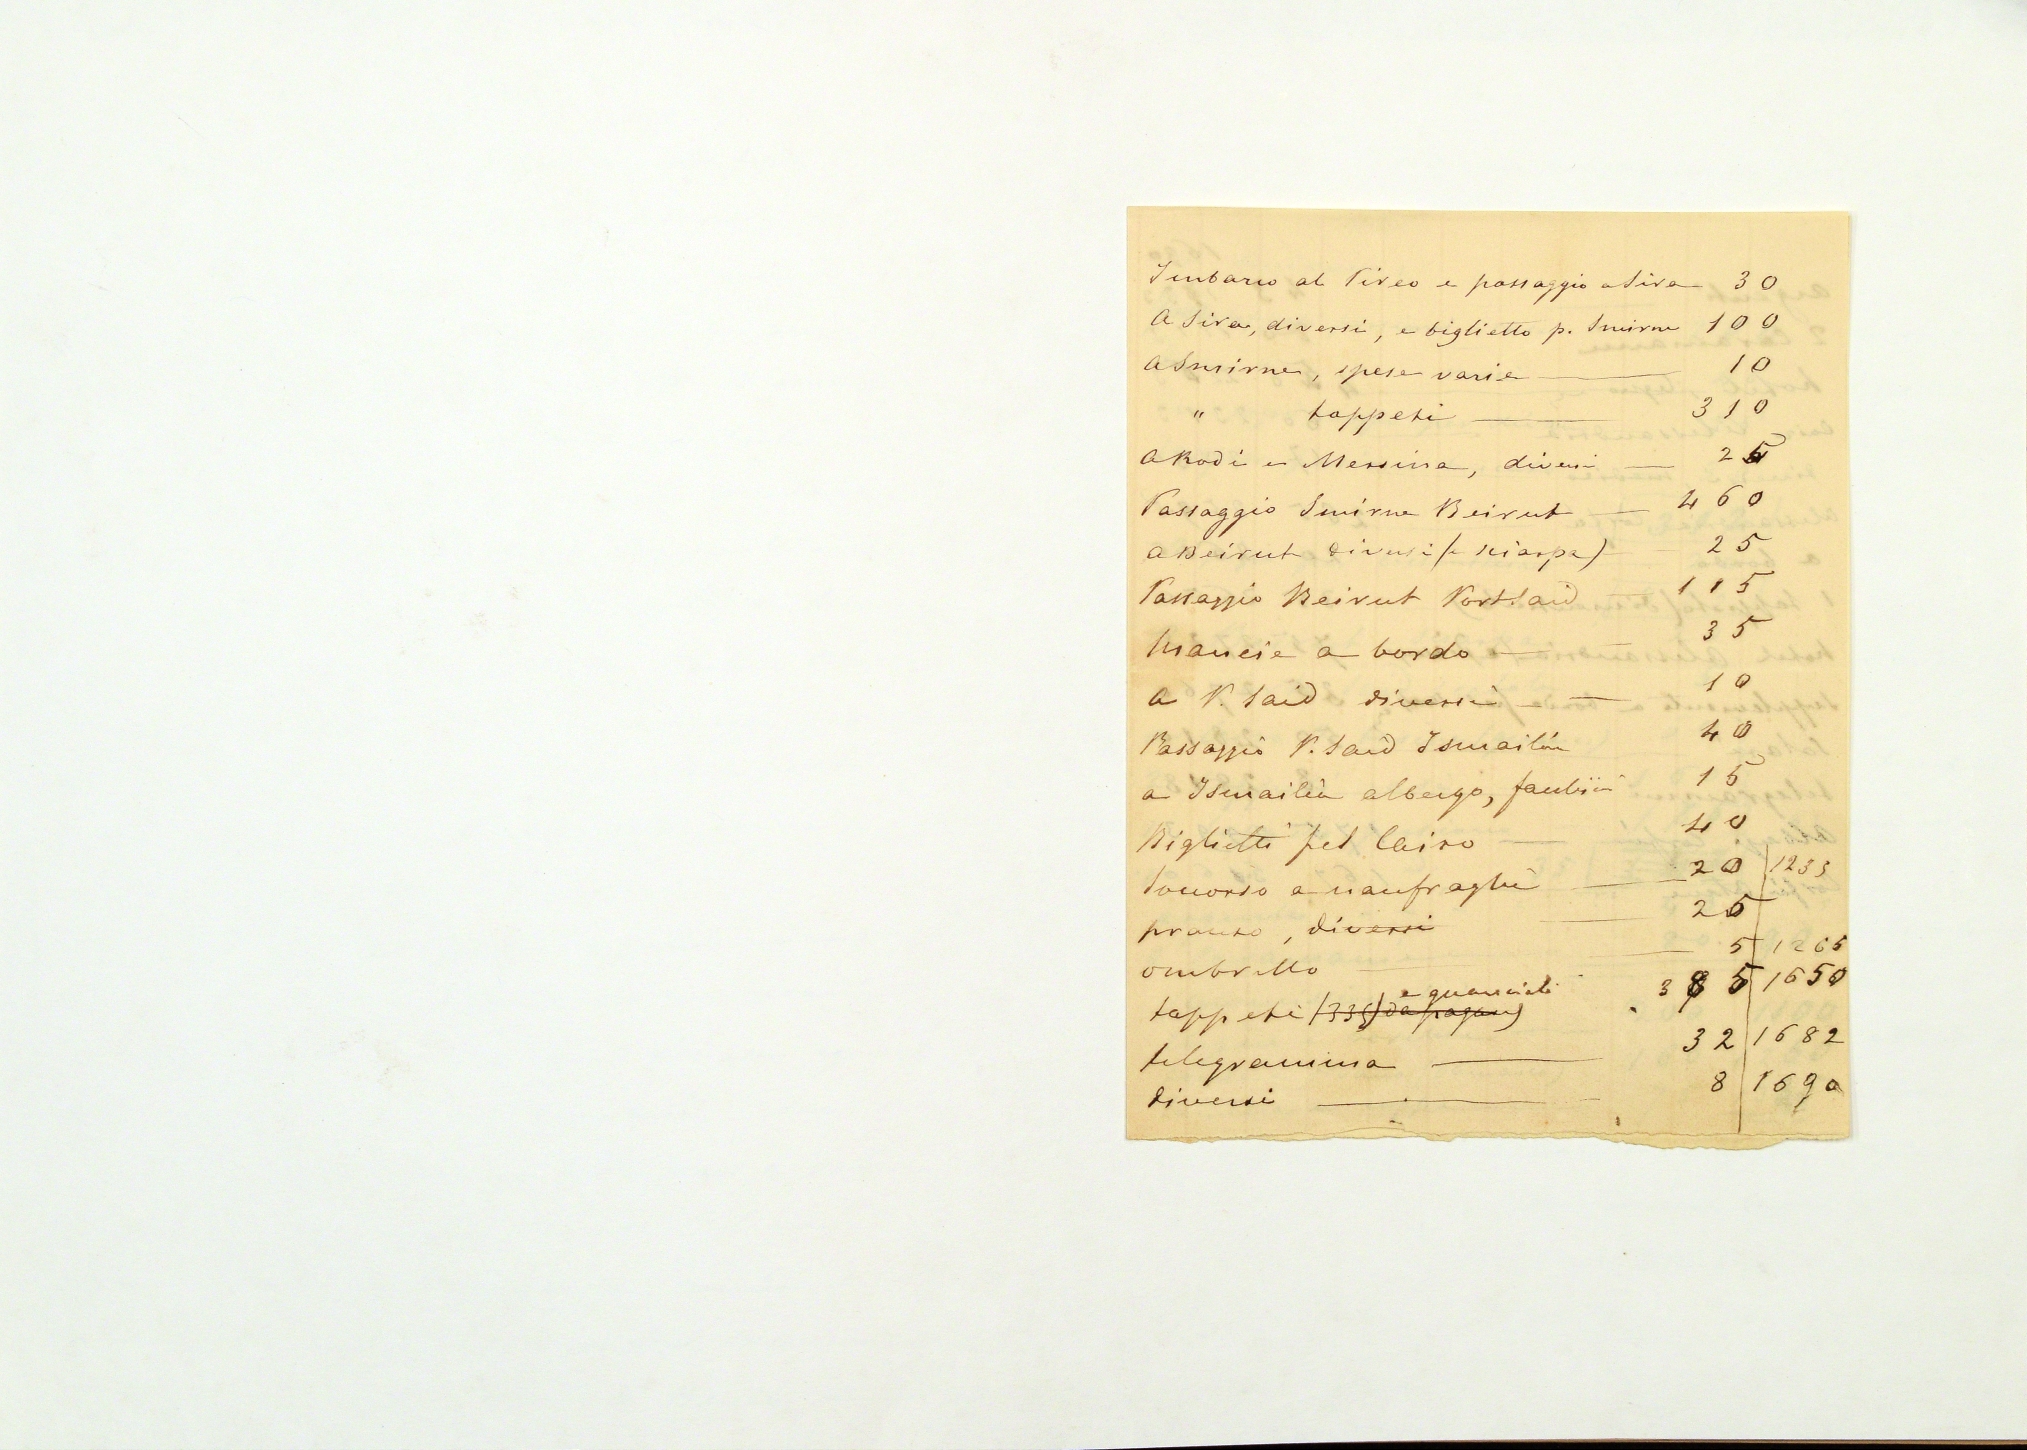 Imbarco al Pireo e passaggio a Sira 30
A Sira, diversi, e biglietto p. Smirne 100
A Smirne, spese varie 10
" tappeti 310
A Rodi e Messina, diversi 25
Passaggio Smirne Beirut 460
A Beirut diversi (e sciarpa) 25
Passaggio Beirut Port Said 115
Mancie a bordo 35
A P. Said diversi 10
Passaggio P. Said Ismailia 40
a Ismailia albergo, facchini 15
Biglietti pel Cairo 40
Soccorso a naufraghi 20 1235
pranzo, diversi 25
ombrello 5 1265
tappeti (335) da pagare) e guanciali 385 1650
telegramma 32 1682
diversi 8 1690